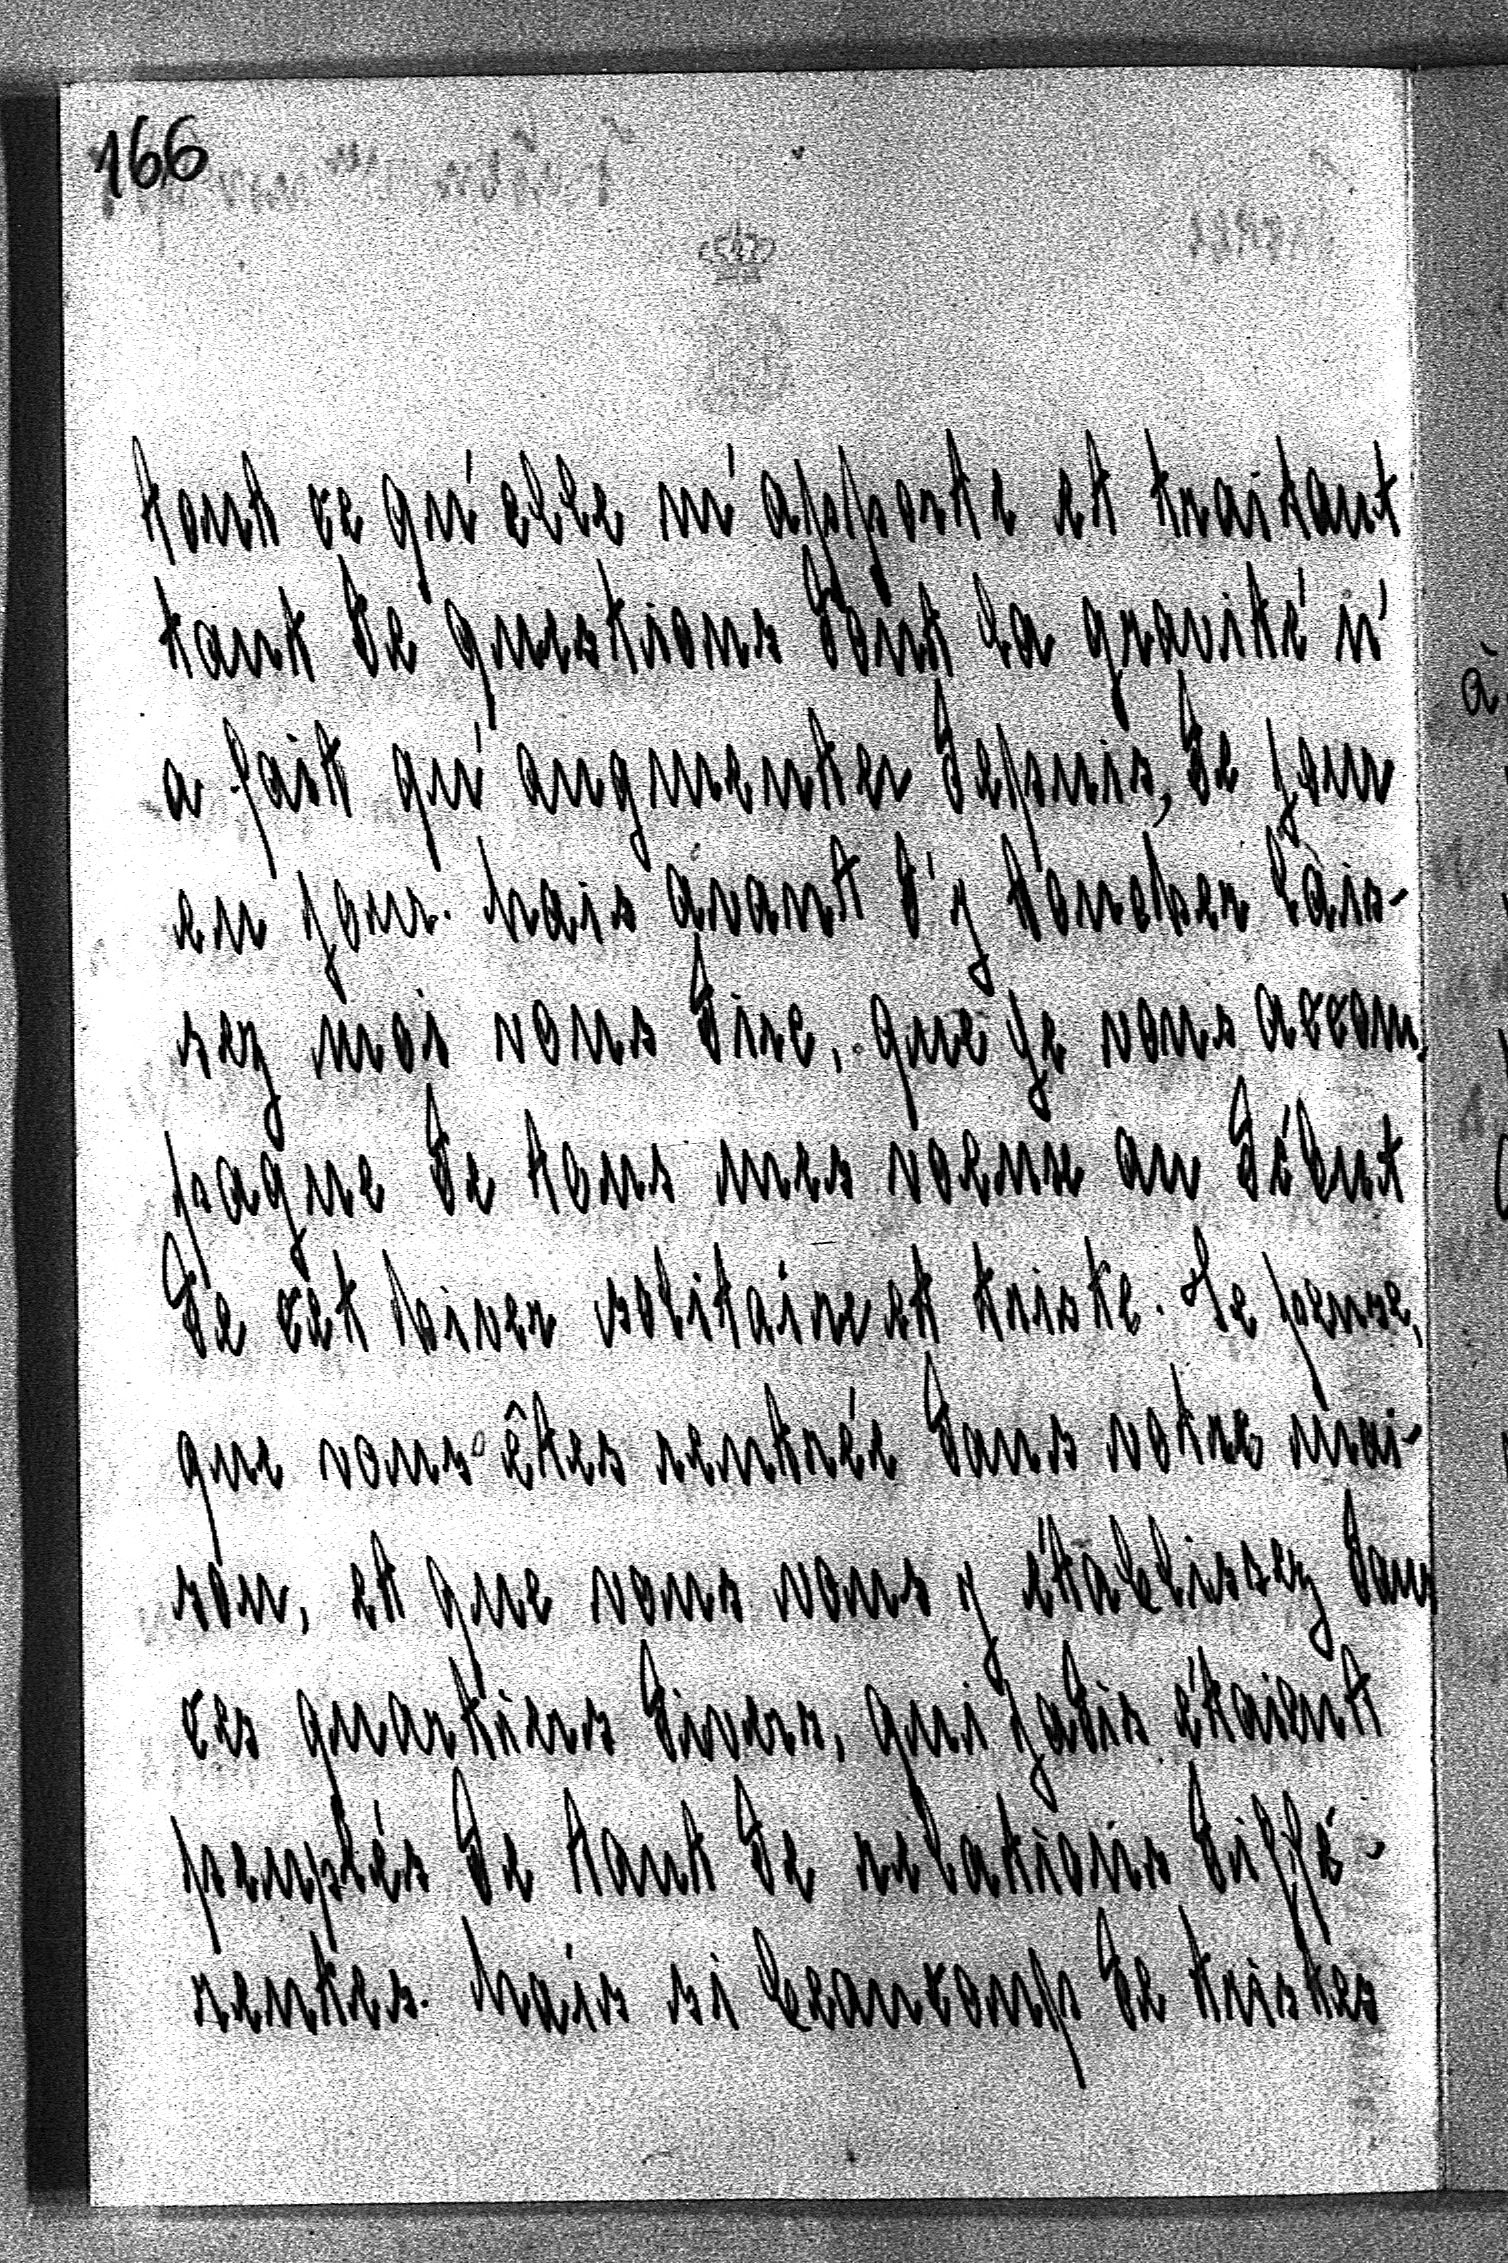 166
tout ce qu'elle m'apporte et traitant
tant de questions dont la gravité n'
a fait qu'augmenter depuis, de jour
en jour. Mais avant d'y toucher lais-
sez moi vous dire, que je vous accom-
pagne de tous mes voeux au début
de cet hiver solitaire et triste. Je pense,
que vous êtes rentrée dans votre mai-
son, et que vous vous y établissez dans
ces quartiers divers, qui jadis étaient
peuplés de tant de relations diffé-
rentes. Mais si beaucoup de tristes
à